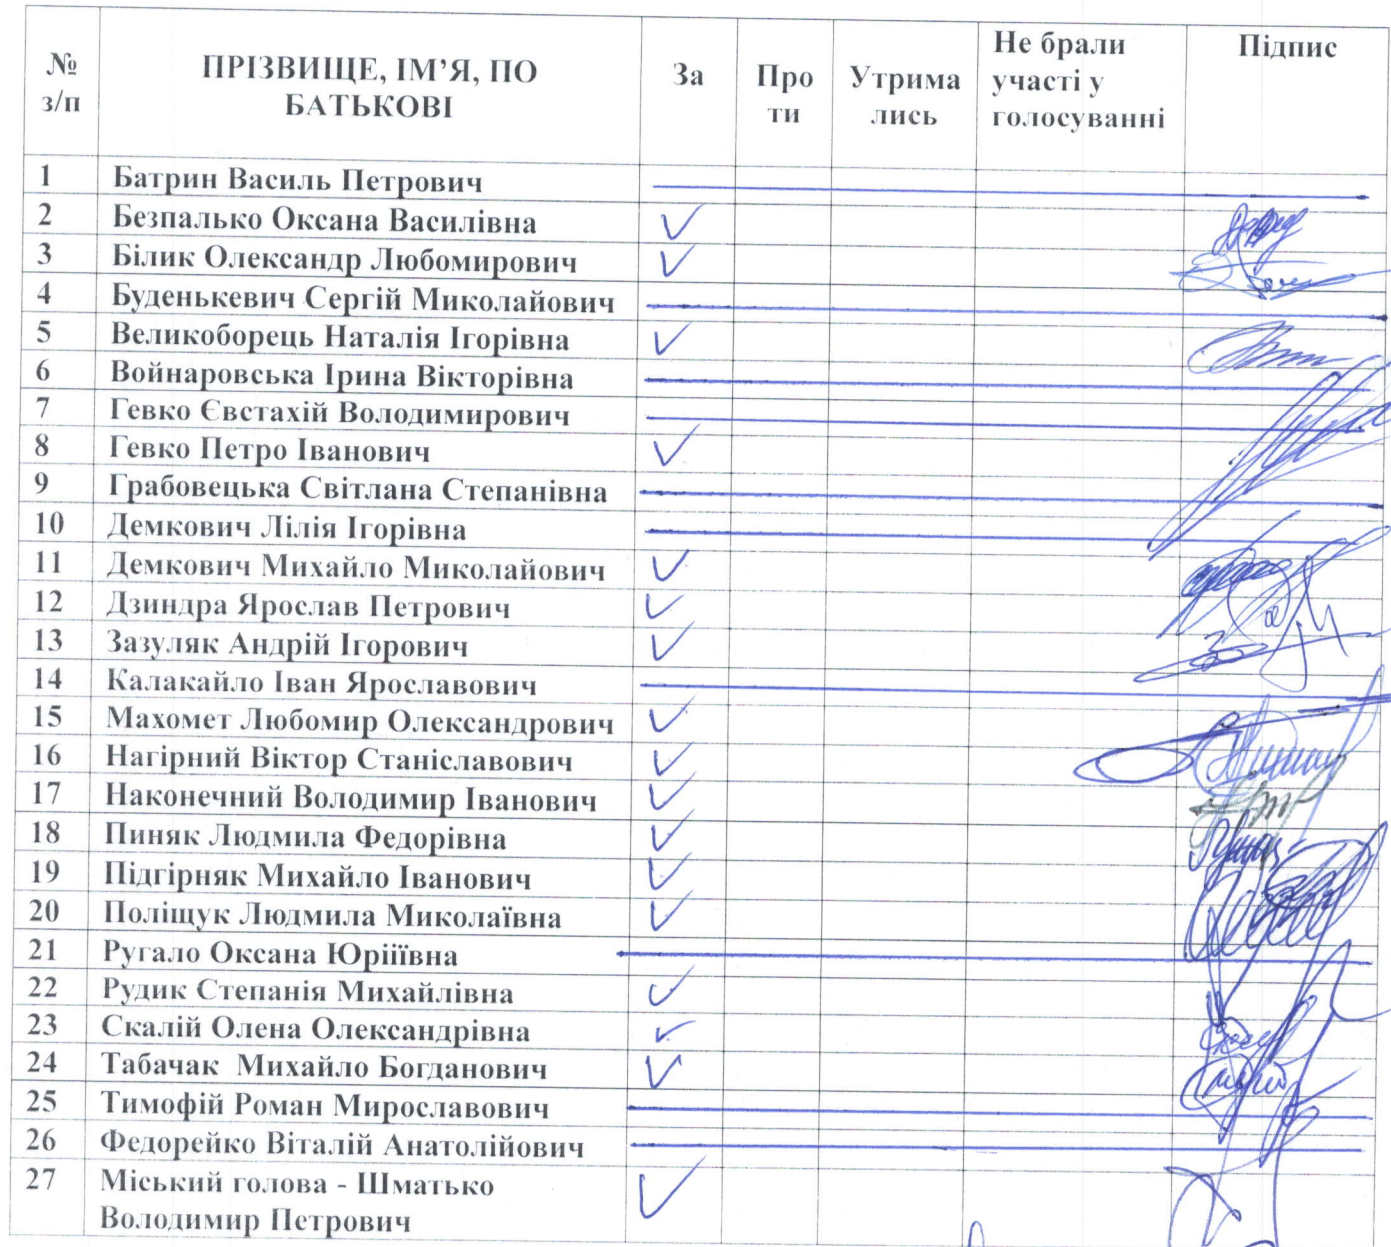 № з/п ПРІЗВИЩЕ, ІМ’Я, ПО БАТЬКОВІ За Про ти Утрима лись Не брали участі у голосуванні Підпис
1 Батрин Василь Петрович
2 Безпалько Оксана Василівна ✓
3 Білик Олександр Любомирович ✓
4 Буденькевич Сергій Миколайович
5 Великоборець Наталія Ігорівна ✓
6 Войнаровська Ірина Вікторівна
7 Гевко Євстахій Володимирович
8 Гевко Петро Іванович ✓
9 Грабовецька Світлана Степанівна
10 Демкович Лілія Ігорівна
11 Демкович Михайло Миколайович ✓
12 Дзиндра Ярослав Петрович ✓
13 Зазуляк Андрій Ігорович ✓
14 Калакайло Іван Ярославович
15 Махомет Любомир Олександрович ✓
16 Нагірний Віктор Станіславович ✓
17 Наконечний Володимир Іванович ✓
18 Пиняк Людмила Федорівна ✓
19 Підгірняк Михайло Іванович ✓
20 Поліщук Людмила Миколаївна ✓
21 Ругало Оксана Юріїївна
22 Рудик Степанія Михайлівна ✓
23 Скалій Олена Олександрівна ✓
24 Табачак Михайло Богданович ✓
25 Тимофій Роман Мирославович
26 Федорейко Віталій Анатолійович
27 Міський голова - Шматько ✓
Володимир Петрович